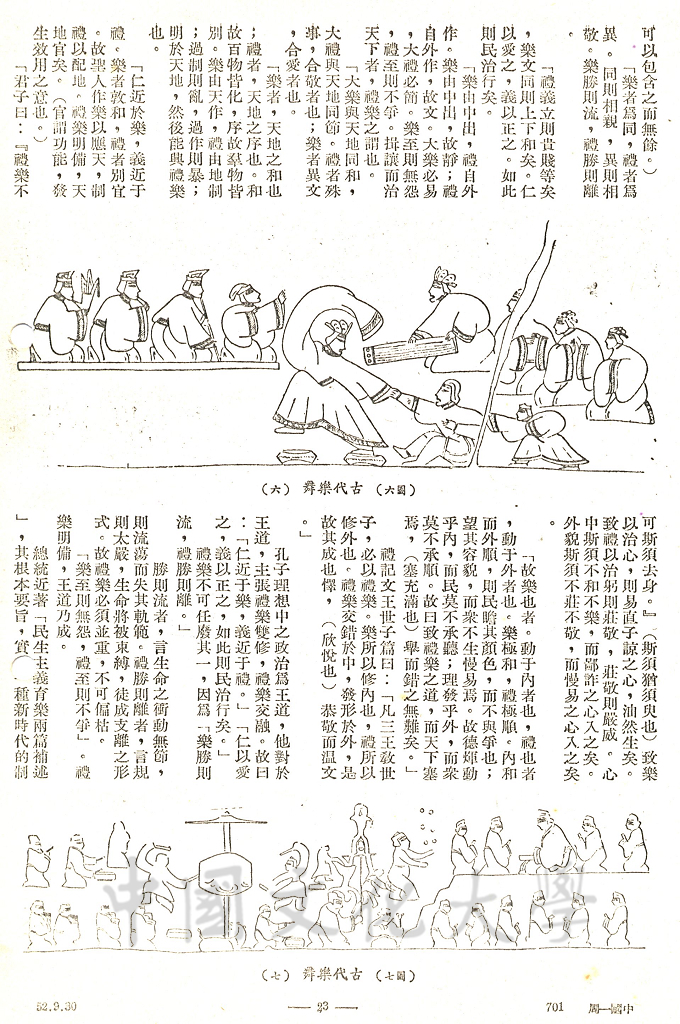 可以包含之而無餘。）
「樂者爲同，禮者爲
異。同則相親，異則相
敬。樂勝則流，禮勝則離
，樂文同則上下和矣。仁
「禮義立則貴賤等矣
以愛之，義以正之。如此
則民治行矣。
「樂由中出，禮自外
作。樂由中出，故靜；禮
自外作，故文。大樂必易
，大禮必簡。樂至則無怨
，禮至則不爭。揖讓而治
天下者，禮樂之謂也。
「大樂與天地同和，
大禮與天地同節。禮者殊
事，合敬者也；樂者異文
，合愛者也。
「樂者，天地之和也
；禮者，天地之序也。和
故百物皆化，序故羣物皆
別。樂由天作，禮由地制
；過制則亂，過作則暴；
明於天地，然後能興禮樂
也。
「仁近於樂，義近于
禮。樂者敦和，禮者別宜
。故聖人作樂以應天，制
禮以配地。禮樂明備，天
地官矣。（官謂功能，發
生效用之意也。）
「君子曰：『禮樂不
（六）舞樂代古（六圖）
可斯須去身。』（斯須猶須臾也）致樂
以治心，則易直子諒之心，油然生矣。
致禮以治躬則莊敬，莊敬則嚴威。心
中斯須不和不樂，而鄙詐之心入之矣。
外貌斯須不莊不敬，而慢易之心入之矣
。
「故樂也者。動於內者也，禮也者
，動于外者也。樂極和，禮極順。內和
而外順，則民瞻其顏色，而不與爭也；
望其容貌，而衆不生慢易焉。故德煇動
乎內，而民莫不承聽；理發乎外，而衆
莫不承順。故曰致禮樂之道，而天下塞
焉，（塞充滿也）舉而錯之無難矣。」
禮記文王世子篇曰：「凡三王敎世
子，必以禮樂。樂所以修內也，禮所以
修外也。禮樂交錯於中，發形於外，是
故其成也懌，（欣悅也）恭敬而温文
。」
孔子理想中之政治爲王道，他對於
王道，主張禮樂雙修，禮樂交融。故曰
：「仁近于樂，義近于禮。」「仁以愛
之，義以正之，如此則民治行矣。」
禮樂不可任廢其一，因爲「樂勝則
流，禮勝則離。」
勝則流者，言生命之衝動無節，
則流蕩而失其軌範。禮勝則離者，言規
則太嚴，生命將被束縛，徒成支離之形
式。故禮樂必須並重，不可偏枯。
「樂至則無怨，禮至則不爭」。禮
樂明備，王道乃成。
總統近著「民生主義育樂兩篇補述
」，其根本要旨，實
種新時代的制
（七）舞樂代古（七圖）
中國文化大學
52.9.30
— 23 —
701
周一國中